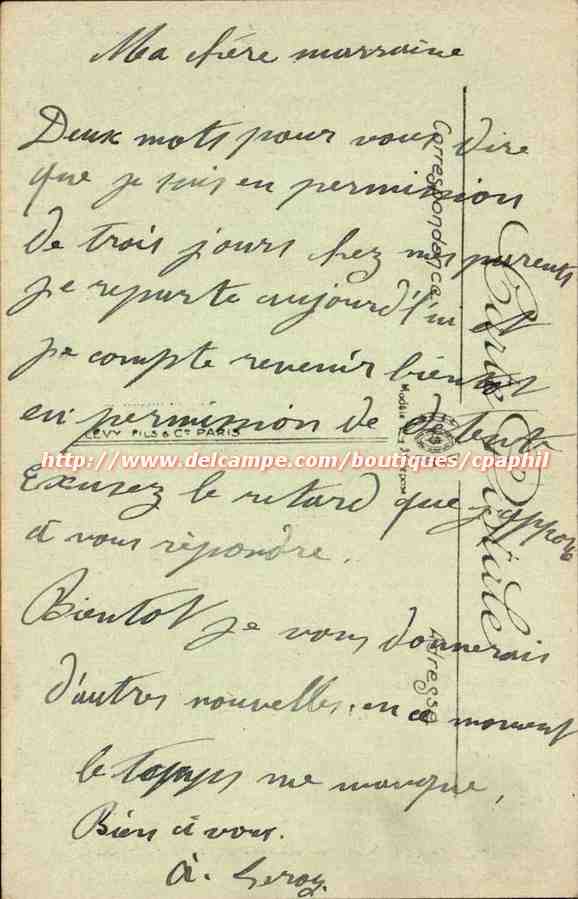 Ma chére marraine
Deux mots pour vous dire
que je suis en permission
de trois jours chez mes parents
je reparte aujourd'hui et
je compte revenir bientot
en permission de detente
Exusez le retard que j'apporte
a vous répondre.
Bientot je vous donnerais
d'autres nouvelles, en ce moment
le temps me manque,
Bien a vous.
A. Leroy
Carte Postale
Correspondance
Adresse
LEVY FILS & Cie PARIS
http://www.delcampe.com/boutiques/cpaphil